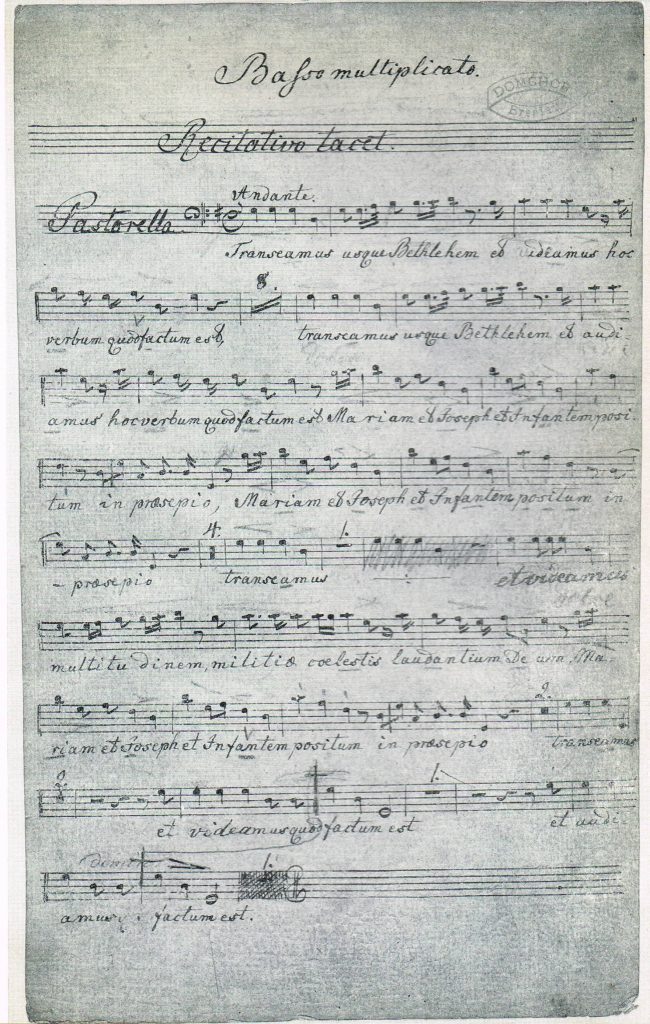 Basso multiplicato.
DOMCHOR
Breslau
Recitativo tacet.
Andante.
Pastorella
Transeamus usque Bethlehem et videamus hoc
8.
verbum quod factum est, transeamus usque Bethlehem et audi-
amus hoc verbum quod factum est Mariam et Joseph et Infantem posi-
tum in præsepio, Mariam et Joseph et Infantem positum in
4. 1.
- præsepio transeamus et videamus
multitudinem, militiæ coelestis laudantium Deum, Ma-
2.
riam et Joseph et Infantem positum in præsepio transeamus
2. 1.
et videamus quod factum est et audi-
dimin
1.
amus factum est.